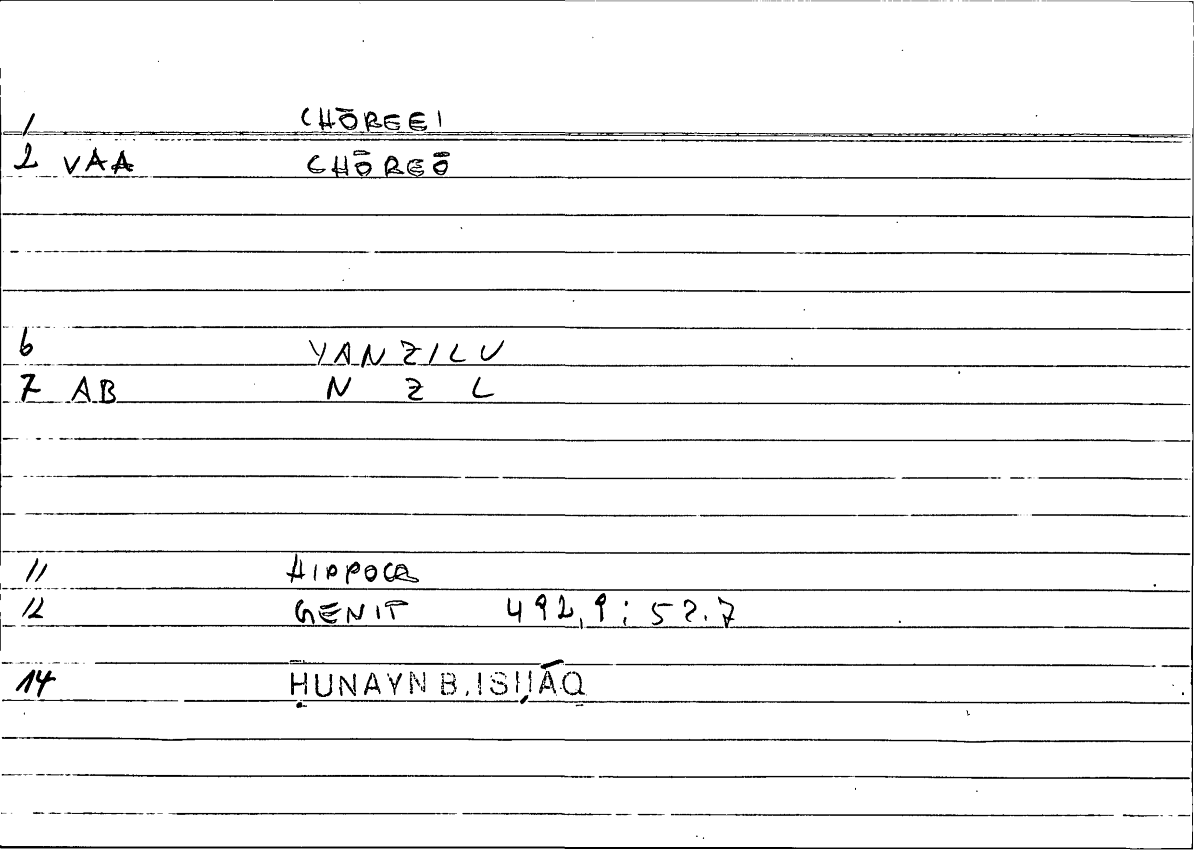 1 CHŌREEI
2 VAA CHŌREŌ
6 YANZILU
7 AB N Z L
11 HIPPOCR
12 GENIT 492,9; 52.7
14 ḤUNAYN B. ISḤĀQ